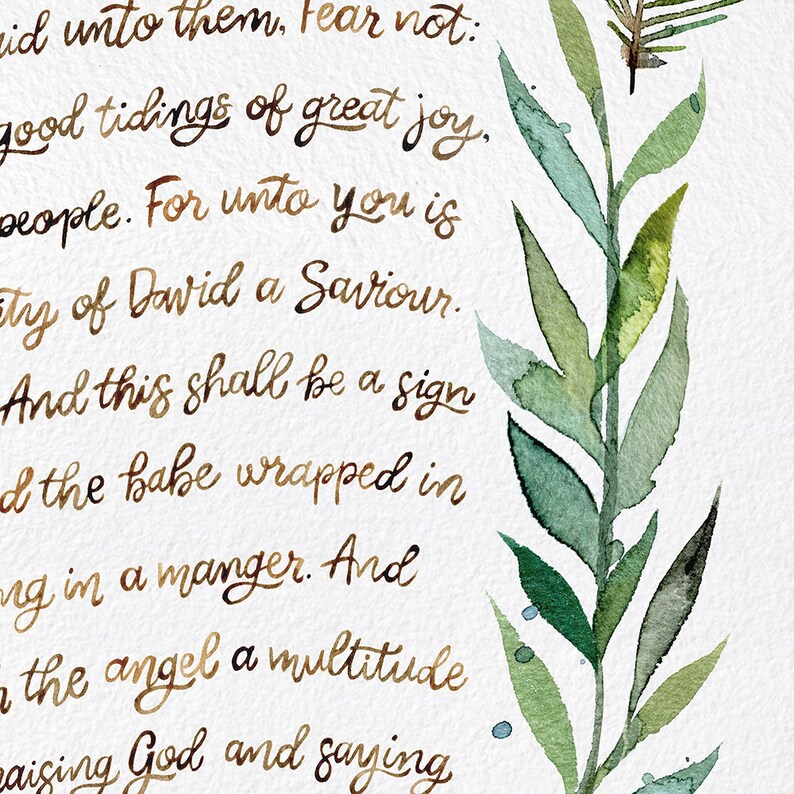 aid unto them, Fear not:
good tidings of great joy,
people. For unto you is
ity of David a Saviour.
And this shall be a sign
d the babe wrapped in
ng in a manger. And
h the angel a multitude
raising God and saying